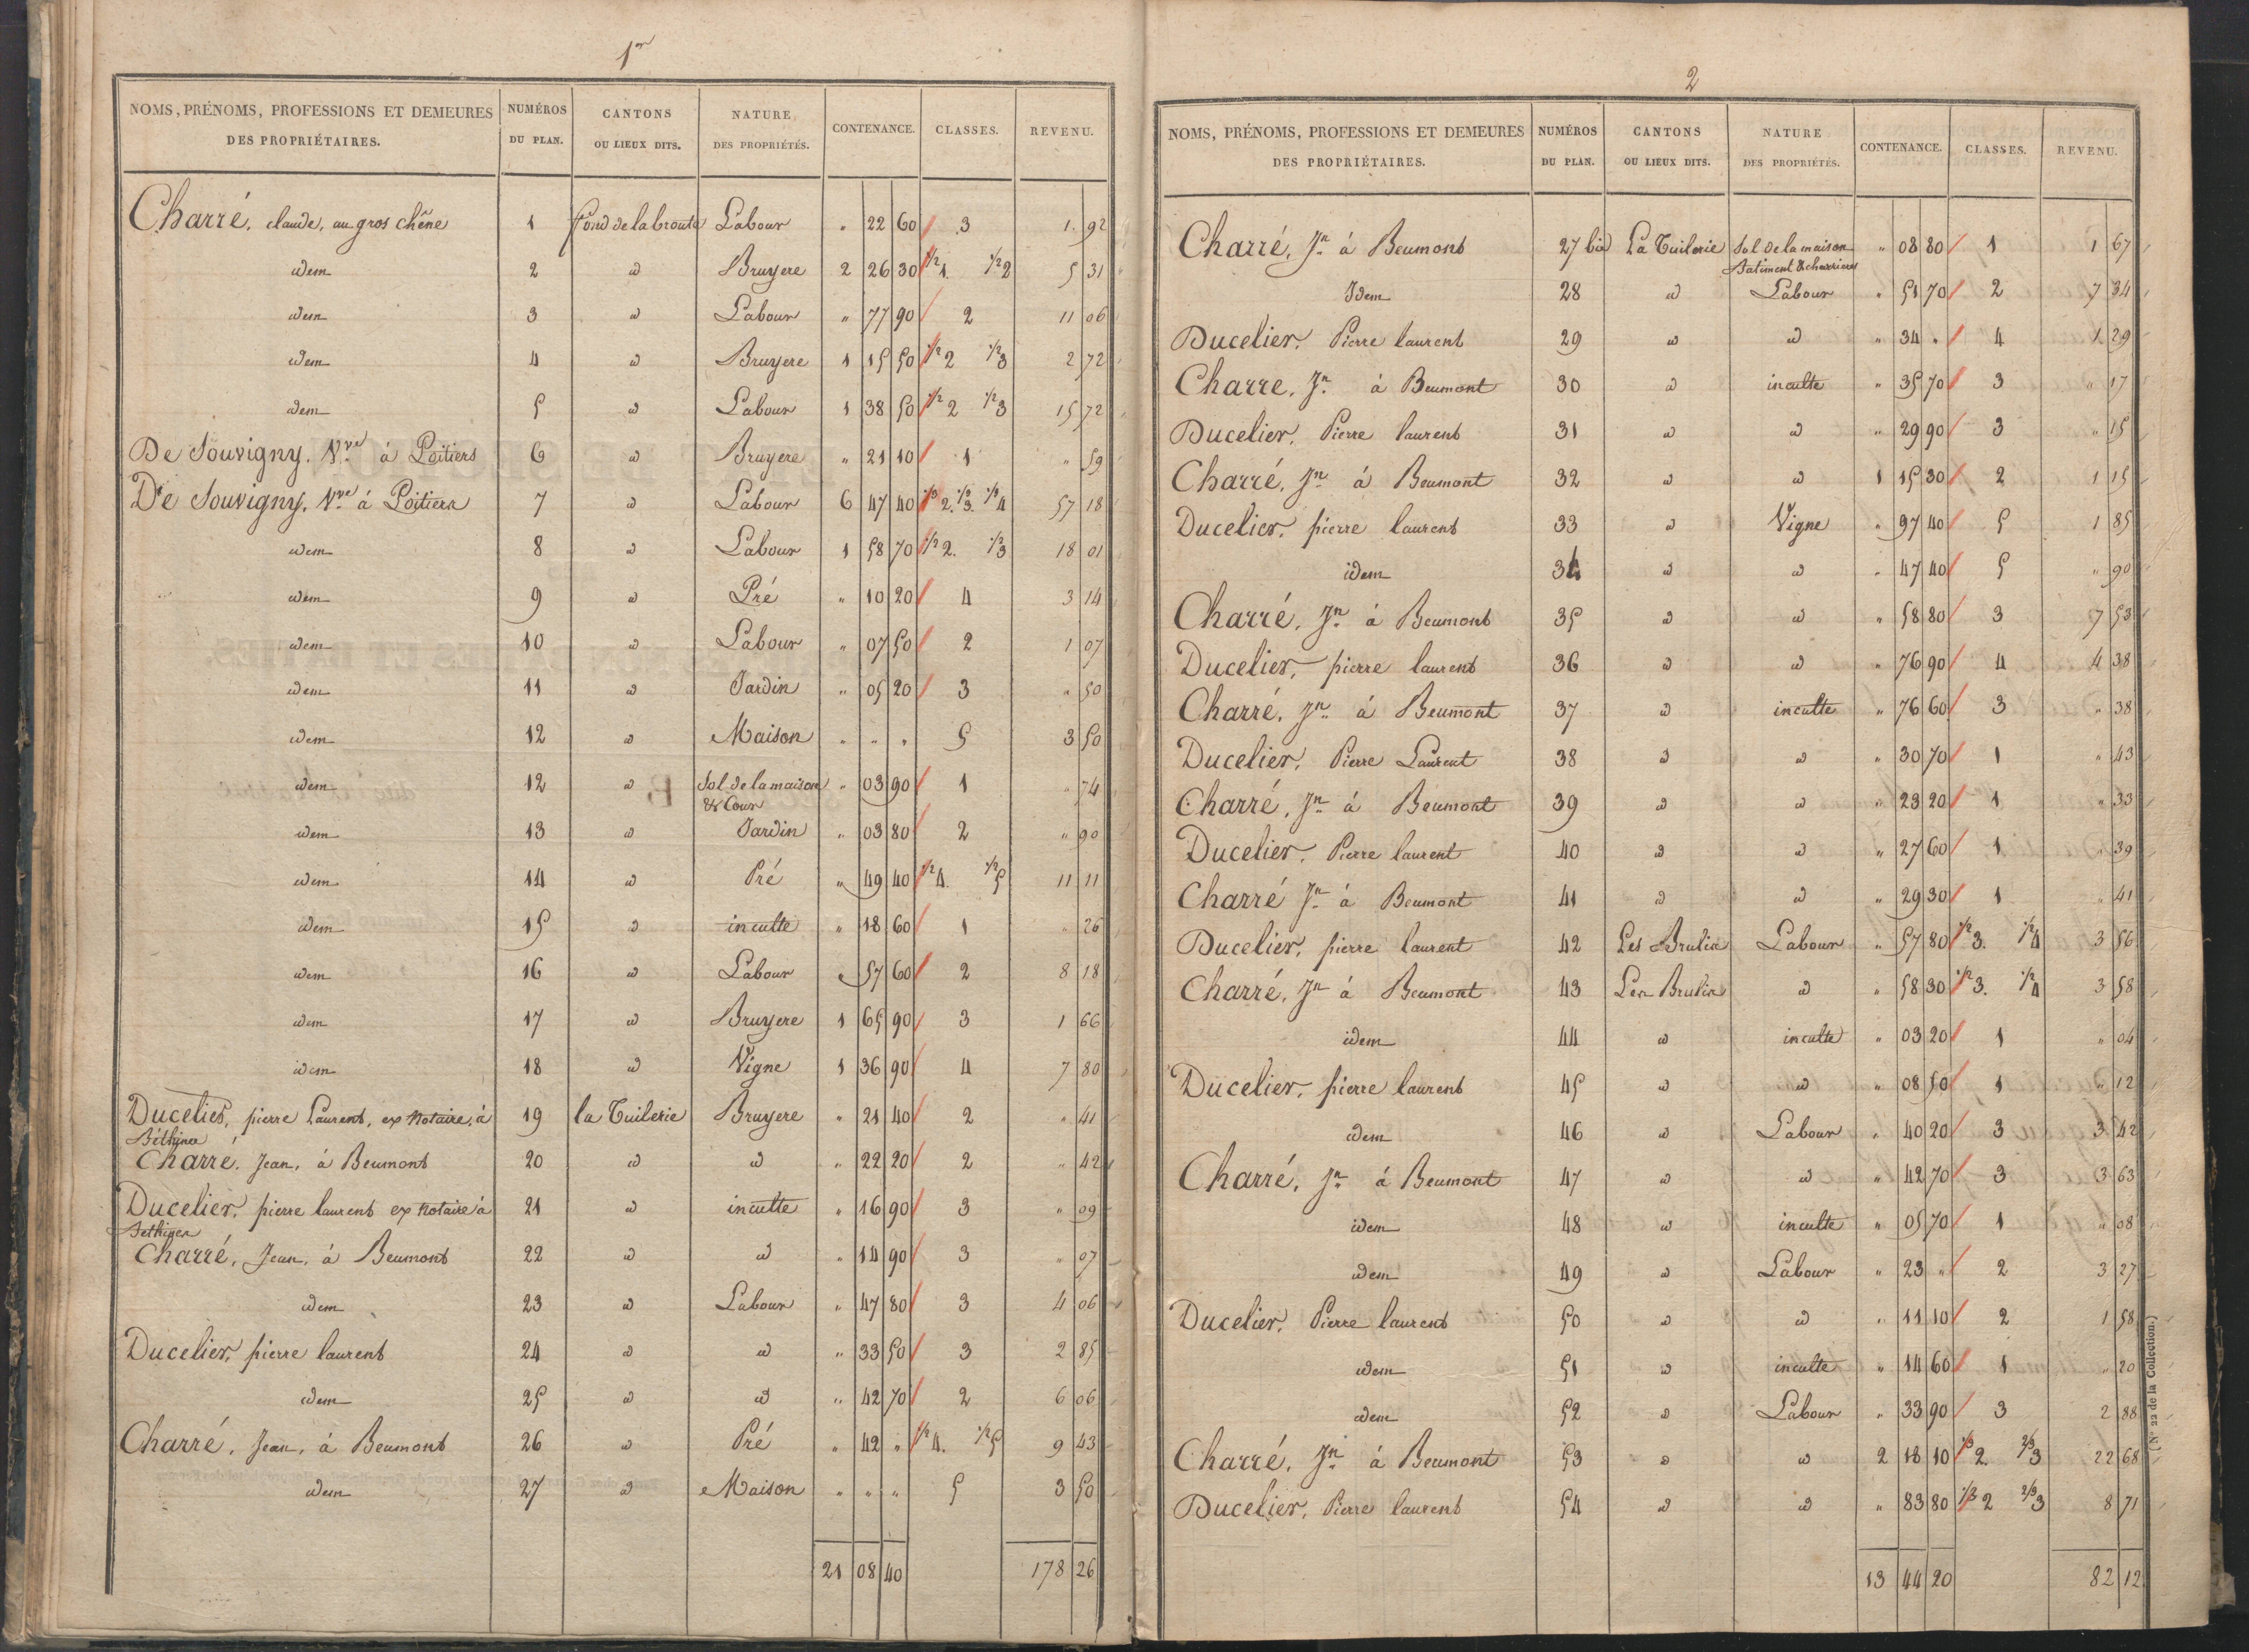 1er
NOMS, PRÉNOMS, PROFESSIONS ET DEMEURES DES PROPRIÉTAIRES. NUMÉROS DU PLAN. CANTONS OU LIEUX DITS. NATURE DES PROPRIÉTÉS. CONTENANCE. CLASSES. REVENU.
Charré, claude, au gros chêne 1 fond de la brouta Labour " 22 60 3 1. 92
idem 2 id Bruyere 2 26 30 1/2 1. 1/2 2 5 31
idem 3 id Labour " 77 90 2 11 06
idem 4 id Bruyere 1 15 50 1/2 2 1/2 3 2 72
idem 5 id Labour 1 38 50 1/2 2 1/2 3 15 72
De Souvigny. Vve à Poitiers 6 id Bruyere " 21 10 1 " 59
De Souvigny. Vve à Poitiers 7 id Labour 6 47 40 1/3 2. 1/3 3 1/3 4 57 18
idem 8 id Labour 1 58 70 1/2 2. 1/2 3 18 01
idem 9 id Pré " 10 20 4 3 14
idem 10 id Labour " 07 50 2 1 07
idem 11 id Jardin " 05 20 3 " 50
idem 12 id Maison " " " 5 3 50
idem 12 id Sol de la maison & Cour " 03 90 1 " 74
idem 13 id Jardin " 03 80 2 " 90
idem 14 id Pré " 49 40 1/2 4. 1/2 5 11 11
idem 15 id inculte " 18 60 1 " 26
idem 16 id Labour " 57 60 2 8 18
idem 17 id Bruyere 1 65 90 3 1 66
idem 18 id Vigne 1 36 90 4 7 80
Ducelier, pierre Laurent, ex Notaire, à Béthines 19 la Tuilerie Bruyere " 21 40 2 " 41
Charré. Jean, à Beumont 20 id id " 22 20 2 " 42
Ducelier, pierre laurent ex Notaire à Bethines 21 id inculte " 16 90 3 " 09
Charré, Jean, à Beumont 22 id id " 14 90 3 " 07
idem 23 id Labour " 47 80 3 4 06
Ducelier, pierre laurent 24 id id " 33 50 3 2 85
idem 25 id id " 42 70 2 6 06
Charré, Jean, à Beumont 26 id Pré " 42 " 1/2 4. 1/2 5 9 43
idem 27 id Maison " " " 5 3 50
21 08 40 178 26
2
NOMS, PRÉNOMS, PROFESSIONS ET DEMEURES DES PROPRIÉTAIRES. NUMÉROS DU PLAN. CANTONS OU LIEUX DITS. NATURE DES PROPRIÉTÉS. CONTENANCE. CLASSES. REVENU.
Charré, Jn à Beumont 27 bis La Tuilerie Sol de la maison Batiment & charrieres " 08 80 1 1 67
Idem 28 id Labour " 51 70 2 7 34
Ducelier, Pierre laurent 29 id id " 34 " 4 1 29
Charre, Jn à Beumont 30 id inculte " 35 70 3 " 17
Ducelier, Pierre laurent 31 id id " 29 90 3 " 15
Charré, Jn à Beumont 32 id id 1 15 30 2 1 15
Ducelier, pierre laurent 33 id Vigne " 97 40 5 1 85
idem 34 id id " 47 40 5 " 90
Charré, Jn à Beumont 35 id id " 58 80 3 7 53
Ducelier, pierre laurent 36 id id " 76 90 4 4 38
Charré, Jn à Beumont 37 id inculte " 76 60 3 " 38
Ducelier, Pierre Laurent 38 id id " 30 70 1 " 43
Charré, Jn à Beumont 39 id id " 23 20 1 " 33
Ducelier, Pierre laurent 40 id id " 27 60 1 " 39
Charré Jn à Beumont 41 id id " 29 30 1 " 41
Ducelier, pierre laurent 42 Les Brulis Labour " 57 80 1/2 3. 1/2 4 3 56
Charré, Jn à Beumont 43 Les Brulis id " 58 30 1/2 3. 1/2 4 3 58
idem 44 id inculte " 03 20 1 " 04
Ducelier, pierre laurent 45 id id " 08 50 1 " 12
idem 46 id Labour " 40 20 3 3 42
Charré, Jn à Beumont 47 id id " 42 70 3 3 63
idem 48 id inculte " 05 70 1 " 08
idem 49 id Labour " 23 " 2 3 27
Ducelier, Pierre laurent 50 id id " 11 10 2 1 58
idem 51 id inculte " 14 60 1 " 20
idem 52 id Labour " 33 90 3 2 88
Charré, Jn à Beumont 53 id id 2 18 10 1/3 2. 2/3 3 22 68
Ducelier, Pierre laurent 54 id id " 83 80 1/3 2 2/3 3 8 71
13 44 20 82 12
(N° 22 de la Collection.)